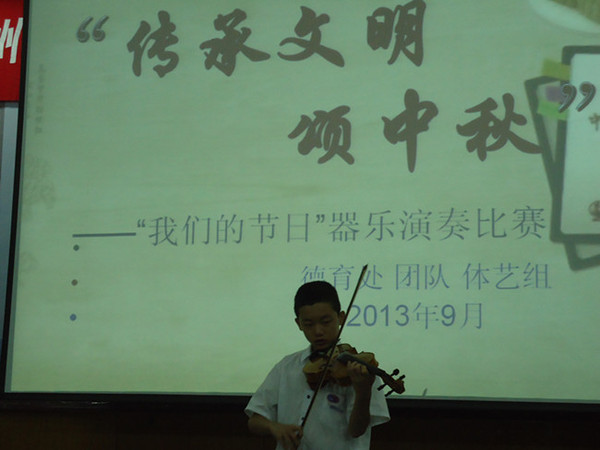 州
“传承文明
颂中秋”
——“我们的节日”器乐演奏比赛
德育处 团队 体艺组
2013年9月